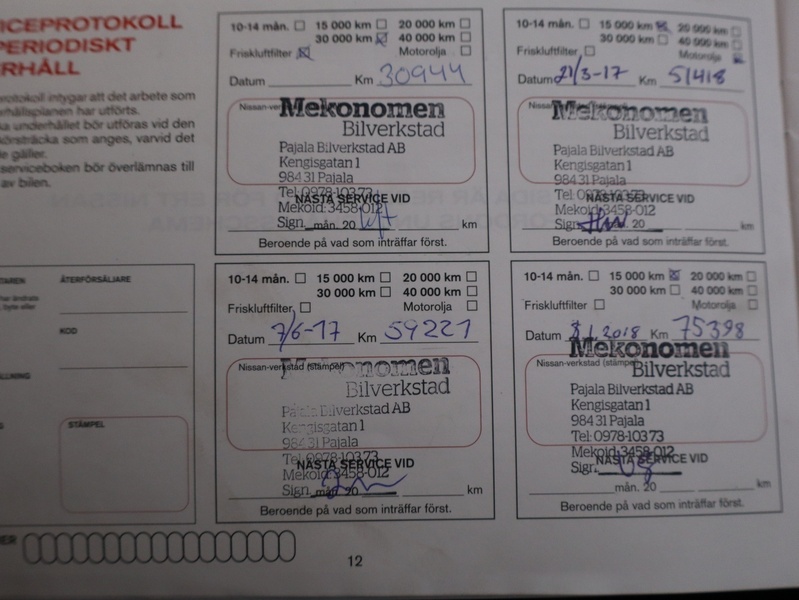 ICEPROTOKOLL
PERIODISKT
RHÅLL
rotokoll intygar att det arbete som
erhållsplanen har utförts.
ka underhållet bör utföras vid den
körsträcka som anges, varvid det
e gäller.
serviceboken bör överlämnas till
av bilen.
10-14 mån. 15 000 km 20 000 km
30 000 km 40 000 km
Friskluftfilter Motorolja
Datum Km 30944
Nissan-verk
Mekonomen
Bilverkstad
Pajala Bilverkstad AB
Kengisgatan 1
984 31 Pajala
Tel: 0978-103 73
NÄSTA SERVICE VID
Mekoid: 3458-012
Sign. mån. 20 km
Beroende på vad som inträffar först.
10-14 mån. 15 000 km 20 000 km
30 000 km 40 000 km
Friskluftfilter Motorolja
Datum 21/3-17 Km 51418
Nissan-verk
Mekonomen
Bilverkstad
Pajala Bilverkstad AB
Kengisgatan 1
984 31 Pajala
Tel: 0978-103 73
NÄSTA SERVICE VID
Mekoid: 3458-012
Sign. mån. 20 km
Beroende på vad som inträffar först.
TAREN ÅTERFÖRSÄLJARE
har ändrats
, byte eller
KOD
LLNING
STÄMPEL
10-14 mån. 15 000 km 20 000 km
30 000 km 40 000 km
Friskluftfilter Motorolja
Datum 7/6-17 Km 59221
Nissan-verkstad (stämpel)
Mekonomen
Bilverkstad
Pajala Bilverkstad AB
Kengisgatan 1
984 31 Pajala
Tel: 0978-103 73
NÄSTA SERVICE VID
Mekoid: 3458-012
Sign. mån. 20 km
Beroende på vad som inträffar först.
10-14 mån. 15 000 km 20 000 km
30 000 km 40 000 km
Friskluftfilter Motorolja
Datum 2018 Km 75398
Mekonomen
Nissan-verkstad (stämpel)
Bilverkstad
Pajala Bilverkstad AB
Kengisgatan 1
984 31 Pajala
Tel: 0978-103 73
Mekoid: 3458-012
NÄSTA SERVICE VID
Sign.
mån. 20 km
Beroende på vad som inträffar först.
ER
12